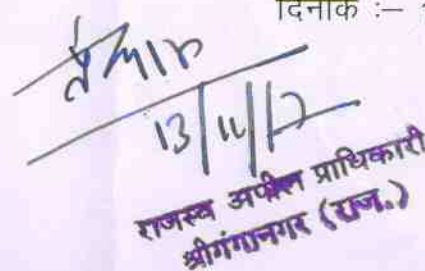 दिनांक :–
13/11/17
राजस्व अपील प्राधिकारी
श्रीगंगानगर (राज.)